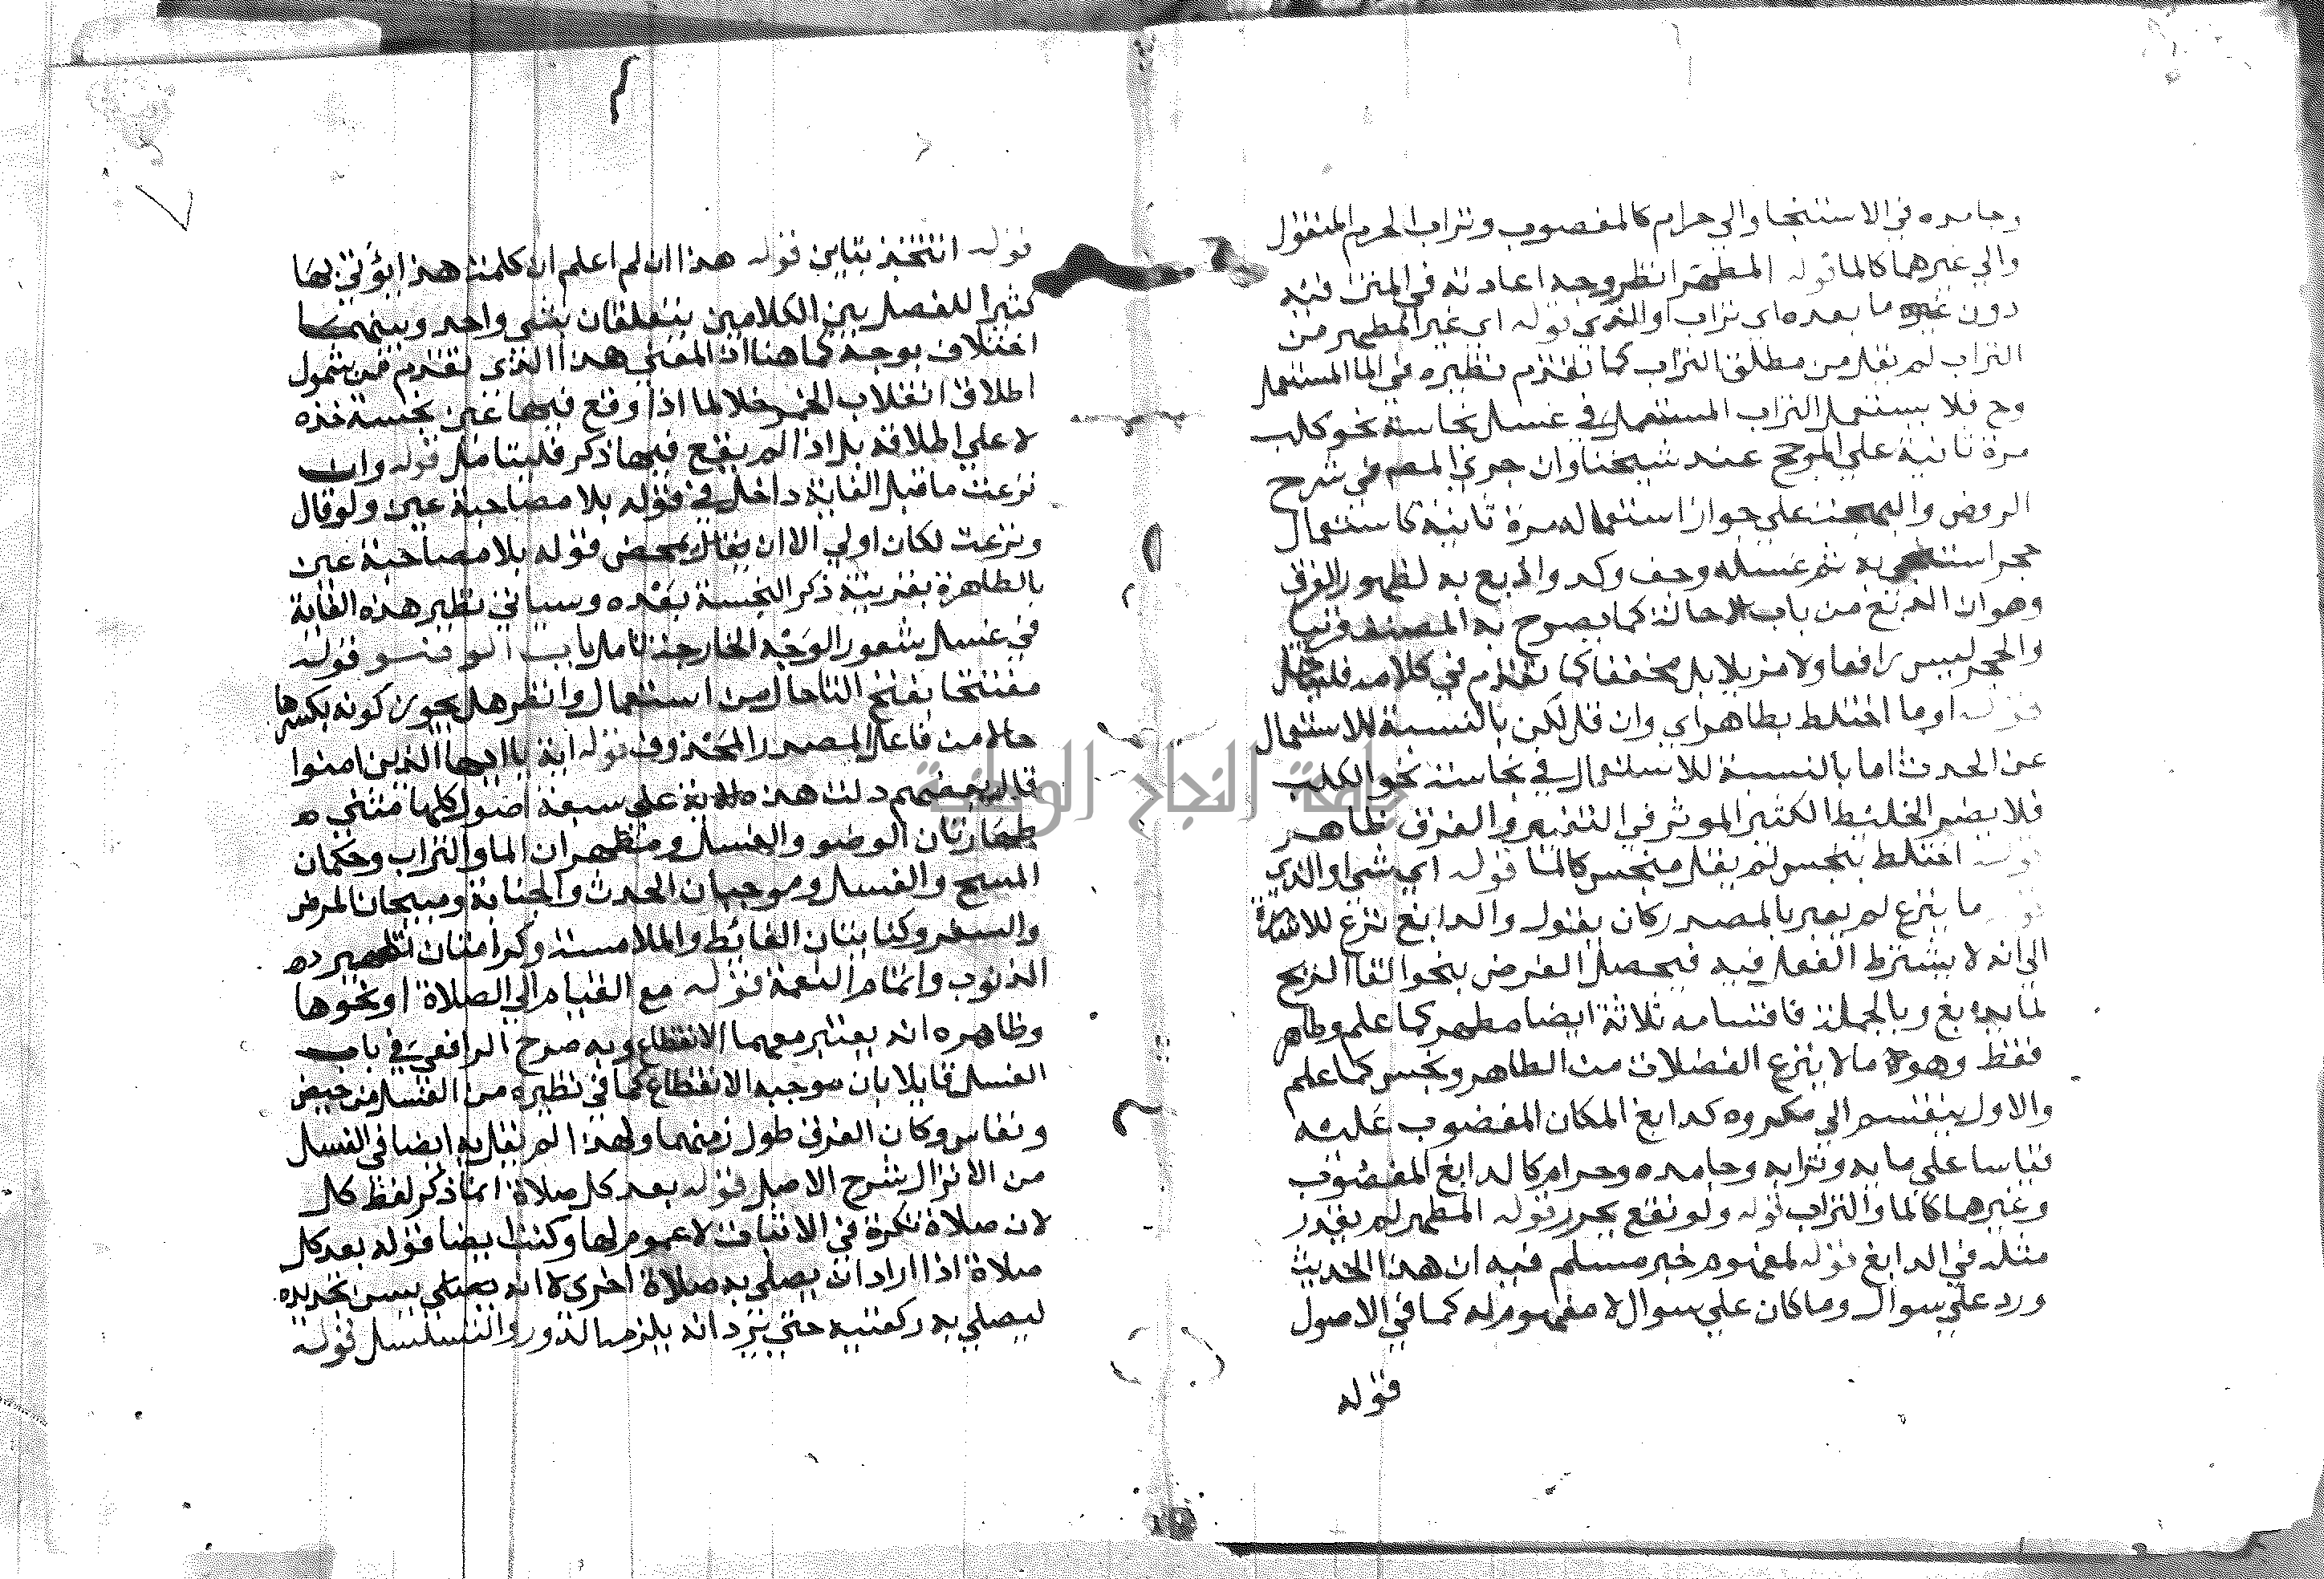 وجامده في الاستنجا والي حرام كالمغصوب وتراب الحرم المنقول
والي غيرهما كالما قوله المطهر انظر وجه اعادته في المتن فيه
دون غيره ما بعده اي تراب او الذي قوله اي غير المطهر من
التراب لم يقل من مطلق التراب كما تقدم نظيره في الما المستعمل
وح فلا يستعمل التراب المستعمل في غسل نجاسة نحو كلب
مرة ثانية علي المرجح عند شيخنا وان جري المصم في شرح
الروض والبهجة علي جواز استعماله مرة ثانية كاستعمال
حجر استنجي به ثم غسله وجف وكدوا دبغ به لظهور الفرق
وهو ان الدبغ من باب الاحالة كما يصرح به المصنف قريبا
والحجر ليس رافعا ولا مزيلا بل مخففا كما تقدم في كلامه فليتامل
قوله او ما اختلط بطاهر اي وان قل لكن بالنسبة للاستعمال
عن الحدث اما بالنسبة للاستعمال في نجاسة نحو الكلب
فلا يضر الخليط الكثير الموثر في التغيير والفرق ظاهر
قوله اختلط بنجس لم يقل منجس كالما قوله اي شي او الذي
قوله ما ينزع لم يعبر بالمصدر كان يقول والدابغ نزع للاشارة
الي انه لا يشترط الفعل فيه فيحصل الغرض بنحو القا الريح
لما يدبغ وبالجملة فاقسامه ثلاثة ايضا مطهر كما علم وطاهر
فقط وهو ما لا ينزع الفضلات من الطاهر ونجس كما علم
والاول ينقسم الي مكروه كدابغ المكان المغضوب عليه
قياسا علي مايه وترابه وجامده وحرام كالدابغ المغصوب
وغيرهما كالما والتراب قوله ولو نقع يحرر قوله المطهر لم يقدر
مثله في الدابغ قوله لمفهوم خبر مسلم فيه ان هذا الحديث
ورد علي سوال وما كان علي سوال لا مفهوم له كما في الاصول
قوله
قوله انتخذ نباين قوله هذا ان لم اعلم ان كلمة هذا يؤتي بها
كثيرا للفصل بين الكلامين يتعلقان بشي واحد وبينهما
اختلاف بوجه كما هنا اذ المعني هذا الذي تقدم من شمول
اطلاق انقلاب الخمر خلا لما اذا وقع فيها عين نجسة خذه
لا علي اطلاقه بل اذا لم يقع فيها ذكر فليتامل قوله وان
نزعت ما قبل الغاية داخل في قوله بلا مصاحبة عين ولو قال
ونزعت لكان اولي الا ان يقال بمحض قوله بلا مصاحبة عين
بالطاهرة بقرينة ذكر النجسة بعده وسياتي نظير هذه الغاية
في غسل شعور الوجه الخارجة تامل باب الوضو قوله
مفتتحا بفتح التا حال من استعمال وانظر هل يجوز كونه بكسرها
حالا من فاعل المصدر المحذوف قوله اية يا ايها الذين امنوا
قال بعضهم دلت هذه الاية علي سبعة اصول كلها مثني
طهارتان الوضو والغسل ومطهران الما والتراب وحكمان
المسح والغسل وموجبان الحدث والجنابة ومبيحان المرض
والسفر وكنايتان الغائط والملامسة وكرامتان تطهير
الذنوب واتمام النعمة قوله مع القيام الي الصلاة او نحوها
وظاهره انه يعتبر معهما الانقطاع وبه صرح الرافعي في باب
الغسل قايلا بان موجبه الانقطاع كما في نظيره من الغسل من حيض
ونفاس وكان الفرق طول زمنهما ولهذا لم يقل به ايضا في الغسل
من الانزال شرح الاصل قوله بعد كل صلاة انما ذكر لفظ كل
لان صلاة نكرة في الاثبات لا عموم لها وكتب ايضا قوله بعد كل
صلاة اذا اراد ان يصلي به صلاة اخري لا انه يصلي بيسن تجديده
ليصلي به ركعتيه حتي نزد انه يلزمه الدور والتسلسل قوله
جامعة النجاح الوطنية